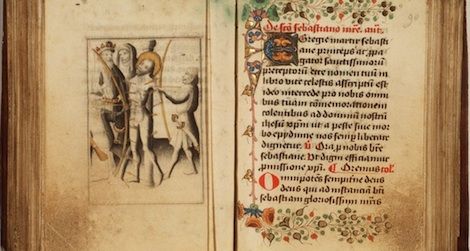 90
De scō sebastiano mr̄e. añt.
Egregie martir sebasti
ane princeps et ꝓpa
gator sanctissimorū
preceptorū ecce nomen tuū in
libro vite celestis asscriptū est
ideo intercede pro nobis omnibus
tuam cōmemorationem
colentibus ad dominū nostrū
ihesū xp̄m ut a peste siue mor
bo epydimie nos semp liberare
dignetur. Ora p nobis bt̄e
sebastiane. Ut digni efficiamur
pmissione xp̄i. Oremus col.
Omnipotēs sempitne deus
deus qui ad instanciā bt̄i
sebastiani gloriosissimi mr̄is